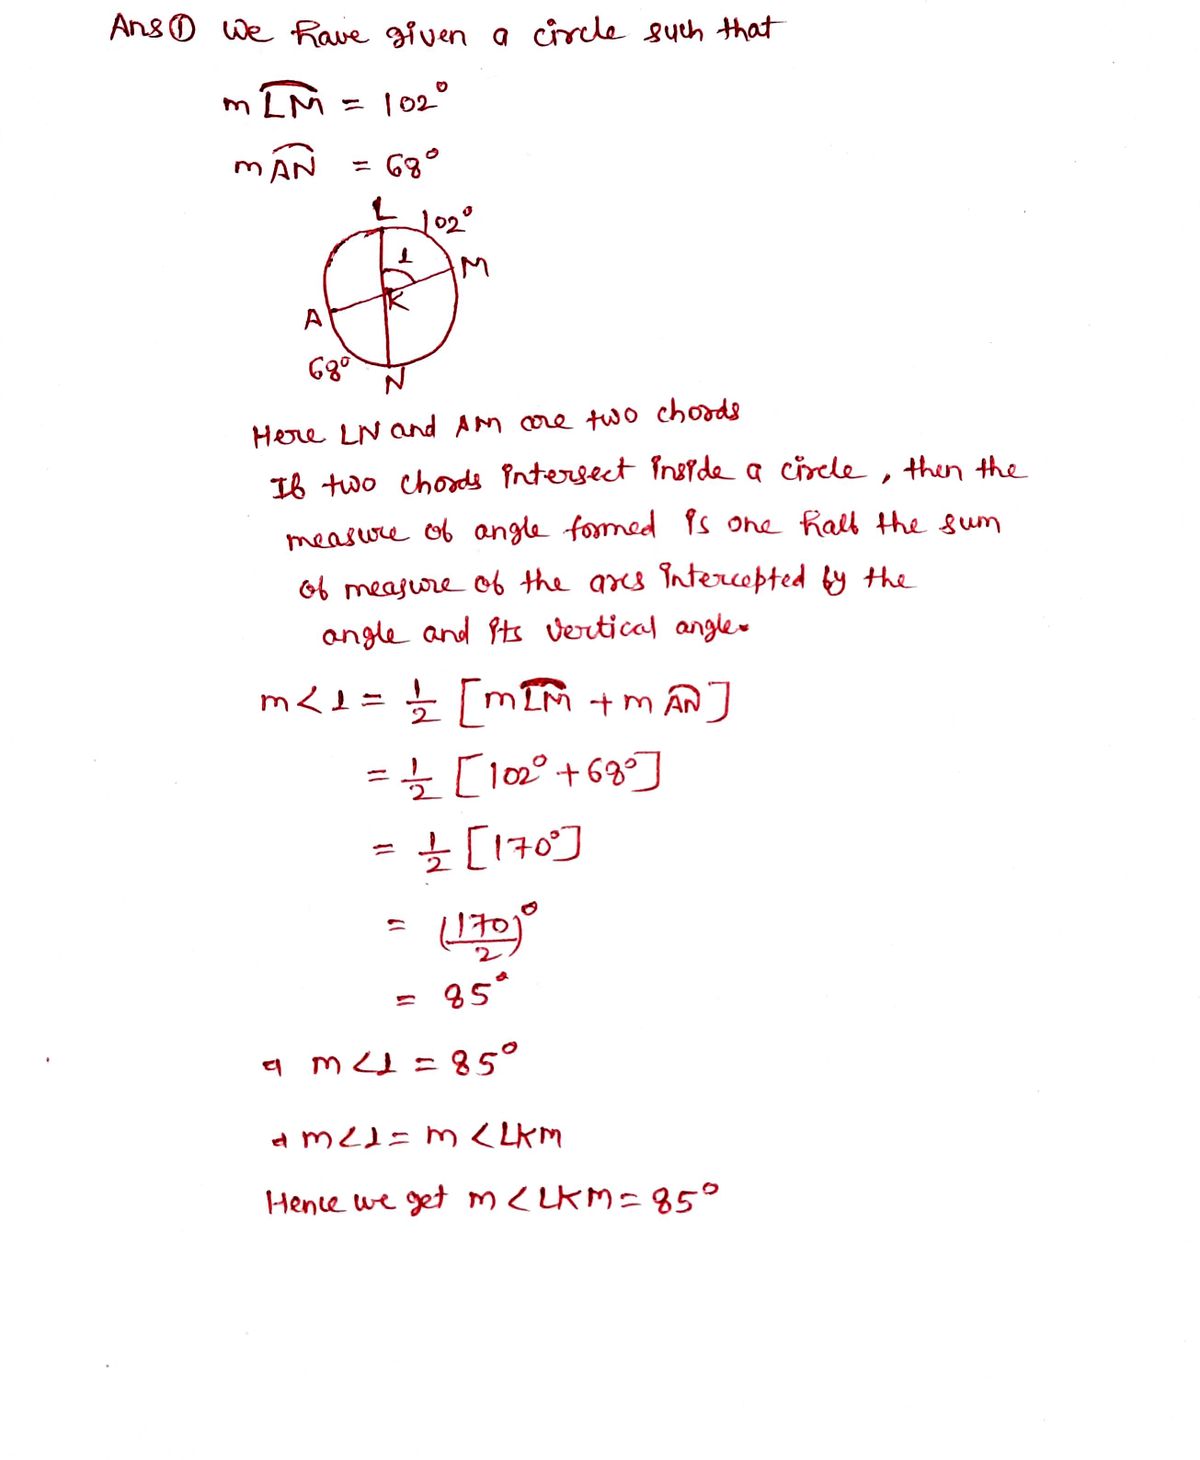 Ans ① We have given a circle such that
m L͡M = 102°
m A͡N = 68°
L 102°
1
M
K
A
68°
N
Here LN and AM are two chords
If two chords intersect inside a circle, then the
measure of angle formed is one half the sum
of measure of the arcs intercepted by the
angle and its vertical angle.
m<1 = 1/2 [m L͡M + m A͡N]
= 1/2 [102° + 68°]
= 1/2 [170°]
= (170/2)°
= 85°
m<1 = 85°
m<1 = m<LKM
Hence we get m<LKM = 85°